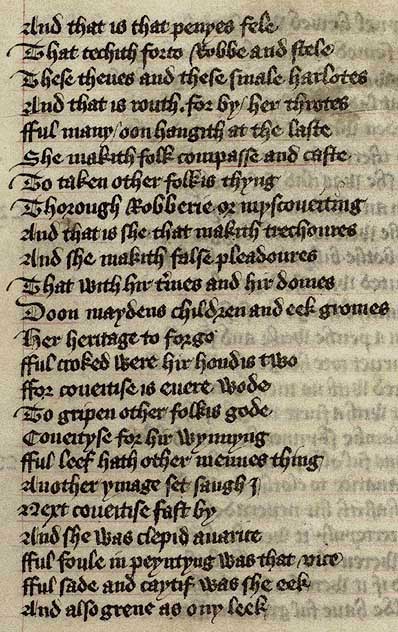 And that is that penyes fele
That techith forto Robbe and stele
These theues and these smale harlotes
And that is routh . for by / her throtes
fful many / oon hangith at the laste
She makith folk compasse and caste
To taken other folkis thyng
Thorough Robberie or myscouetiing
And that is she that makith trechoures
And she makith false pleadoures
That with hir t'mes and hir domes
Doon maydens children and eek gromes
Her heritage to forgo
fful croked were hir hondis two
ffor coueitise is euere wode
To gripen other folkis gode
Coueityse for hir wynnyng
fful leef hath other mennes thing
Another ymage set saugh I
Next coueitise fast by
And she was clepid auarice
fful foule in peyntyng was that vice
fful sade and caytif was she eek
And also grene as ony leek